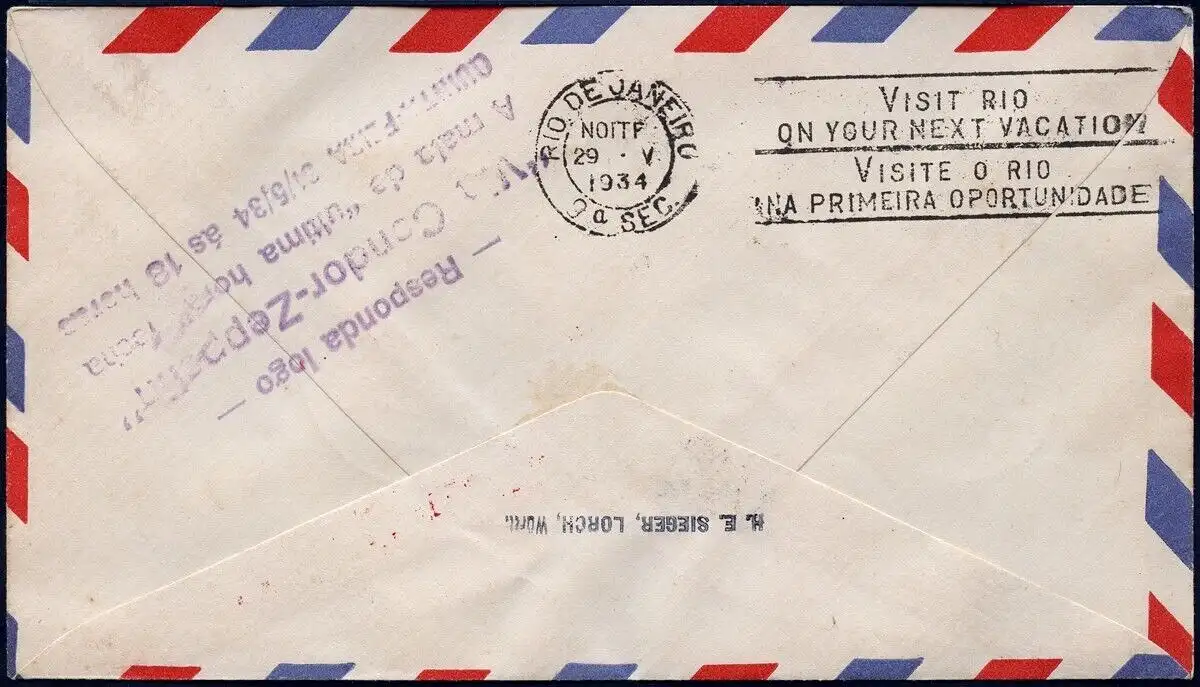 RIO DE JANEIRO
NOITE
29 · V
1934
SEC.
VISIT RIO
ON YOUR NEXT VACATION
VISITE O RIO
NA PRIMEIRA OPORTUNIDADE
— Responda logo —
"Via Condor-Zeppelin"
A mala da "ultima hora" fecha
QUINTA-FEIRA 31/5/34 ás 18 horas
H. E. SIEGER, LORCH, Württ.